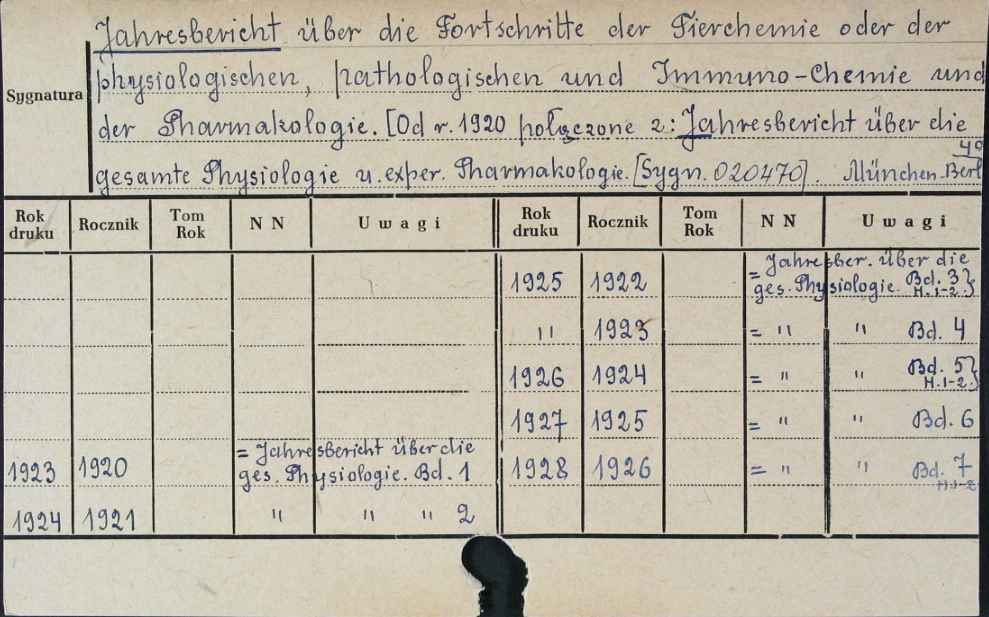 Jahresbericht über die Fortschritte der Tierchemie oder der
Sygnatura physiologischen, pathologischen und Immuno-Chemie und
der Pharmakologie. [Od r. 1920 połączone z: Jahresbericht über die
4º
gesamte Physiologie u. exper. Pharmakologie. [Sygn. 020470]. München. Berl
Rok druku Rocznik Tom Rok N N Uwagi Rok druku Rocznik Tom Rok N N Uwagi
1925 1922 = Jahresber. über die ges. Physiologie. Bd. 3} H. 1-2.}
" 1923 = " " Bd. 4
1926 1924 = " " Bd. 5} H. 1-2.}
1927 1925 = " " Bd. 6
1923 1920 = Jahresbericht über die ges. Physiologie. Bd. 1 1928 1926 = " " Bd. 7 H. 1-2
1924 1921 " " " 2